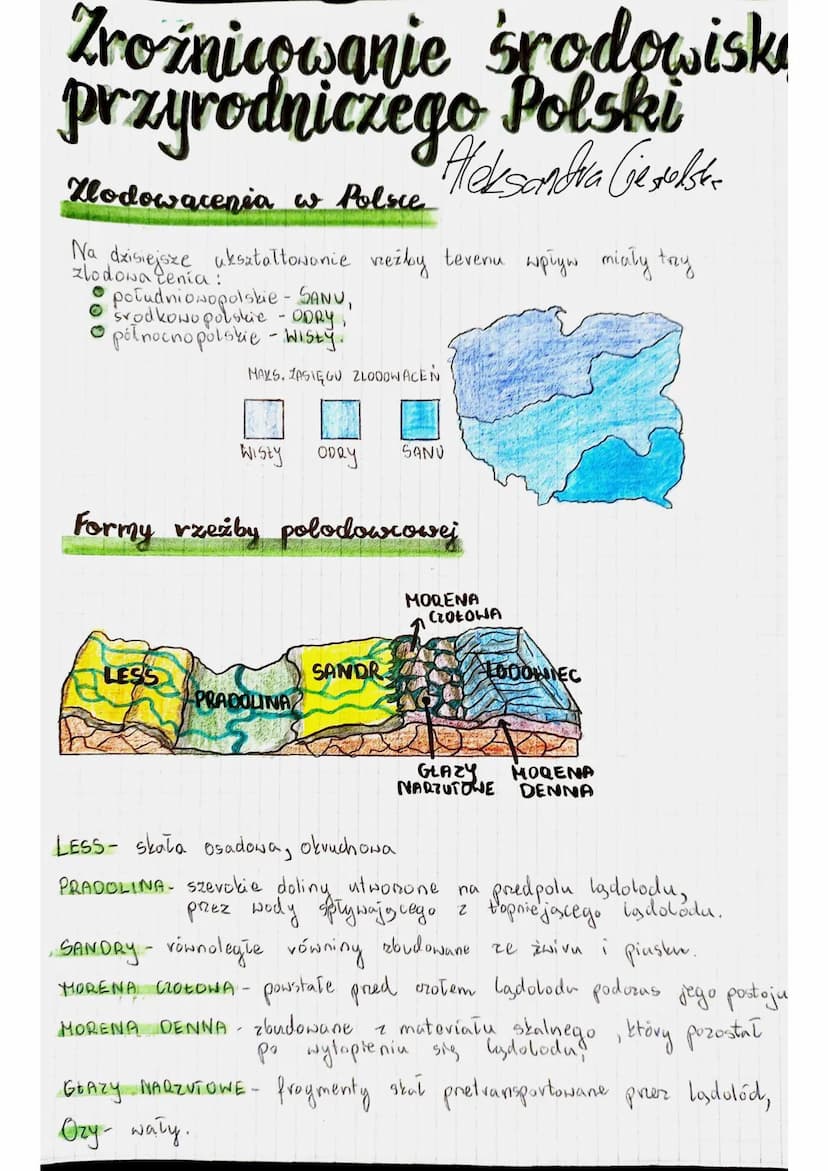 Zroźnicowanie środowiska
przyrodniczego Polski
Aleksandra
Zlodowacenia w Polsce
Na dzisiejsze ukształtowanie rzeźby terenu wpływ miały trzy
zlodowacenia:
południowopolskie - SANU,
środkowopolskie - ODRY,
północnopolskie - WISŁY.
MAKS. ZASIĘGU ZLODOWACEŃ
WISŁY ODRY SANU
Formy rzeźby polodowcowej
MORENA
CZOŁOWA
LESS
PRADOLINA
SANDR
LODOWIEC
GŁAZY
NARZUTOWE
MORENA
DENNA
LESS- skała osadowa, okruchowa
PRADOLINA- szerokie doliny utworzone na przedpolu lądolodu,
przez wody spływającego z topniejącego lądolodu.
SANDRY - równoległe równiny zbudowane ze żwiru i piasku.
MORENA CZOŁOWA - powstałe przed czołem lądolodu podczas jego postoju
MORENA DENNA - zbudowane z materiału skalnego, który pozostał
po wytopieniu się lądolodu,
GŁAZY NARZUTOWE - fragmenty skał pretransportowane przez lądolód,
Ozy - wały.